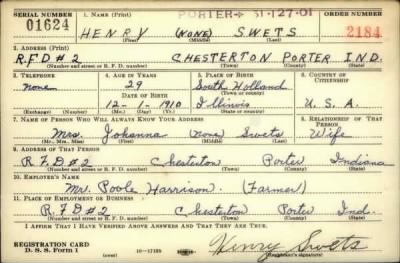 SERIAL NUMBER 1. NAME (Print) PORTER 31-127-01 ORDER NUMBER
01624 HENRY (NONE) SWETS 2184
(First) (Middle) (Last)
2. ADDRESS (Print)
R.F.D #2 CHESTERTON PORTER IND.
(Number and street or R. F. D. number) (Town) (County) (State)
3. TELEPHONE 4. AGE IN YEARS 5. PLACE OF BIRTH 6. COUNTRY OF CITIZENSHIP
none 29 South Holland
DATE OF BIRTH (Town or county)
12-1-1910 Illinois U.S.A.
(Exchange) (Number) (Mo.) (Day) (Yr.) (State or country)
7. NAME OF PERSON WHO WILL ALWAYS KNOW YOUR ADDRESS 8. RELATIONSHIP OF THAT PERSON
Mrs. Johanna (none) Swets Wife
(Mr., Mrs., Miss) (First) (Middle) (Last)
9. ADDRESS OF THAT PERSON
R.F.D #2 Chesterton Porter Indiana
(Number and street or R. F. D. number) (Town) (County) (State)
10. EMPLOYER'S NAME
Mr. Poole Harrison. (Farmer)
11. PLACE OF EMPLOYMENT OR BUSINESS
R.F.D #2 Chesterton Porter Ind.
(Number and street or R. F. D. number) (Town) (County) (State)
I AFFIRM THAT I HAVE VERIFIED ABOVE ANSWERS AND THAT THEY ARE TRUE.
REGISTRATION CARD
D. S. S. Form 1 (over) 16-17105 Henry Swets
(Registrant's signature)